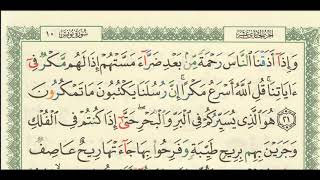 سورة يونس ١٠ الجزء الحادي عشر
وَإِذَآ أَذَقْنَا ٱلنَّاسَ رَحْمَةً مِّنۢ بَعْدِ ضَرَّآءَ مَسَّتْهُمْ إِذَا لَهُم مَّكْرٌ فِىٓ
ءَايَاتِنَا ۚ قُلِ ٱللَّهُ أَسْرَعُ مَكْرًا ۚ إِنَّ رُسُلَنَا يَكْتُبُونَ مَا تَمْكُرُونَ
﴿٢١﴾ هُوَ ٱلَّذِى يُسَيِّرُكُمْ فِى ٱلْبَرِّ وَٱلْبَحْرِ ۖ حَتَّىٰٓ إِذَا كُنتُمْ فِى ٱلْفُلْكِ
وَجَرَيْنَ بِهِم بِرِيحٍ طَيِّبَةٍ وَفَرِحُوا۟ بِهَا جَآءَتْهَا رِيحٌ عَاصِفٌ